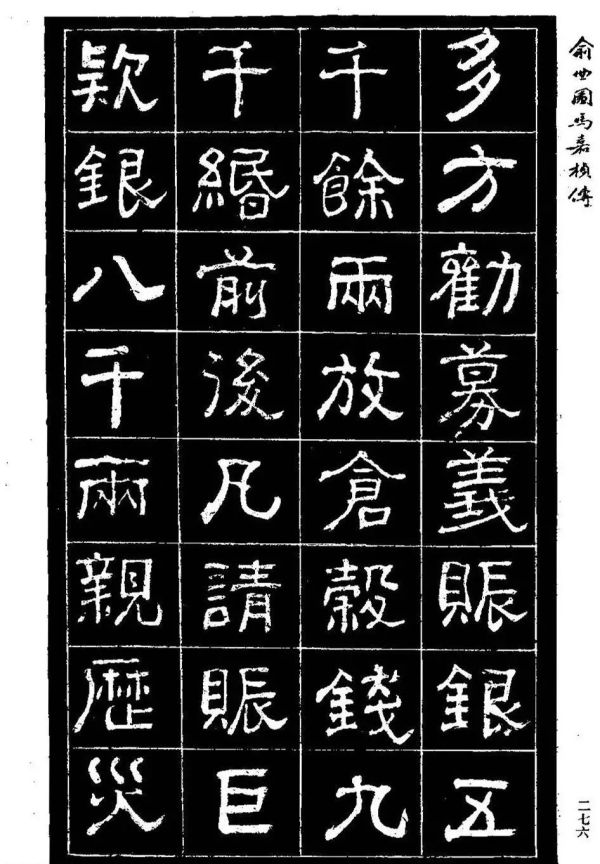 多方勸募義賑銀五
千餘兩放倉穀錢九
千緡前後凡請賑巨
款銀八千兩親歷災
二七六